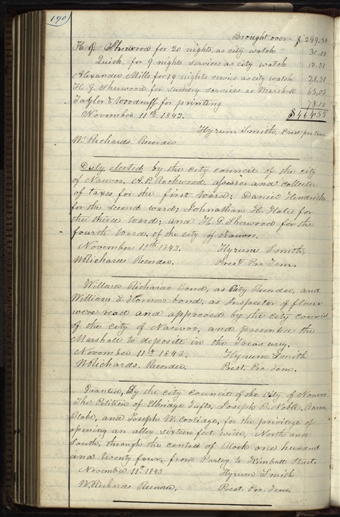 190
Brought over $ 249.50
H G Sherwood for 20 nights, as city watch
Quick for 9 nights services as city watch
Alexander Mills for 19 nights service as city watch
H. G. Sherwood for sundry services as Marshall
Taylor & Woodruff for printing
November 11th 1843.
Hyrum Smith, Prest pro tem
W. Richards Recorder
Duly elected by the city council of the city
of Nauvoo. A. P. Rockwood assessor and collector
of taxes for the first ward; Daniel Hendrix
for the second ward; Johnathan H. Hale for
the third ward; and H. G. Sherwood for the
fourth ward, of the city of Nauvoo.
November 11th 1843. Hyrum Smith,
W. Richards Recorder. Prest Pro Tem.
Willard Richards Bond, as City Recorder, and
William E. Horner bond, as Inspector of flour
were read and approved by the city council
of the city of Nauvoo, and presented the
Marshall to deposit in the Treasury.
November 11th 1843. Hyrum Smith
W Richards. Recorder. Prest. Pro Tem.
Granted, by the city council of the City of Nauvoo
The Petition of Elbridge Tufts, Joseph B. Noble,
and Joseph W. Coolidge, for the privilege of
opening an alley sixteen feet wide, North and
South, through the center of Block one hundred
and twenty four, from Parley to Kimball Street.
November 11th 1843 Hyrum Smith
W. Richards Recorder, Prest. Pro Tem.